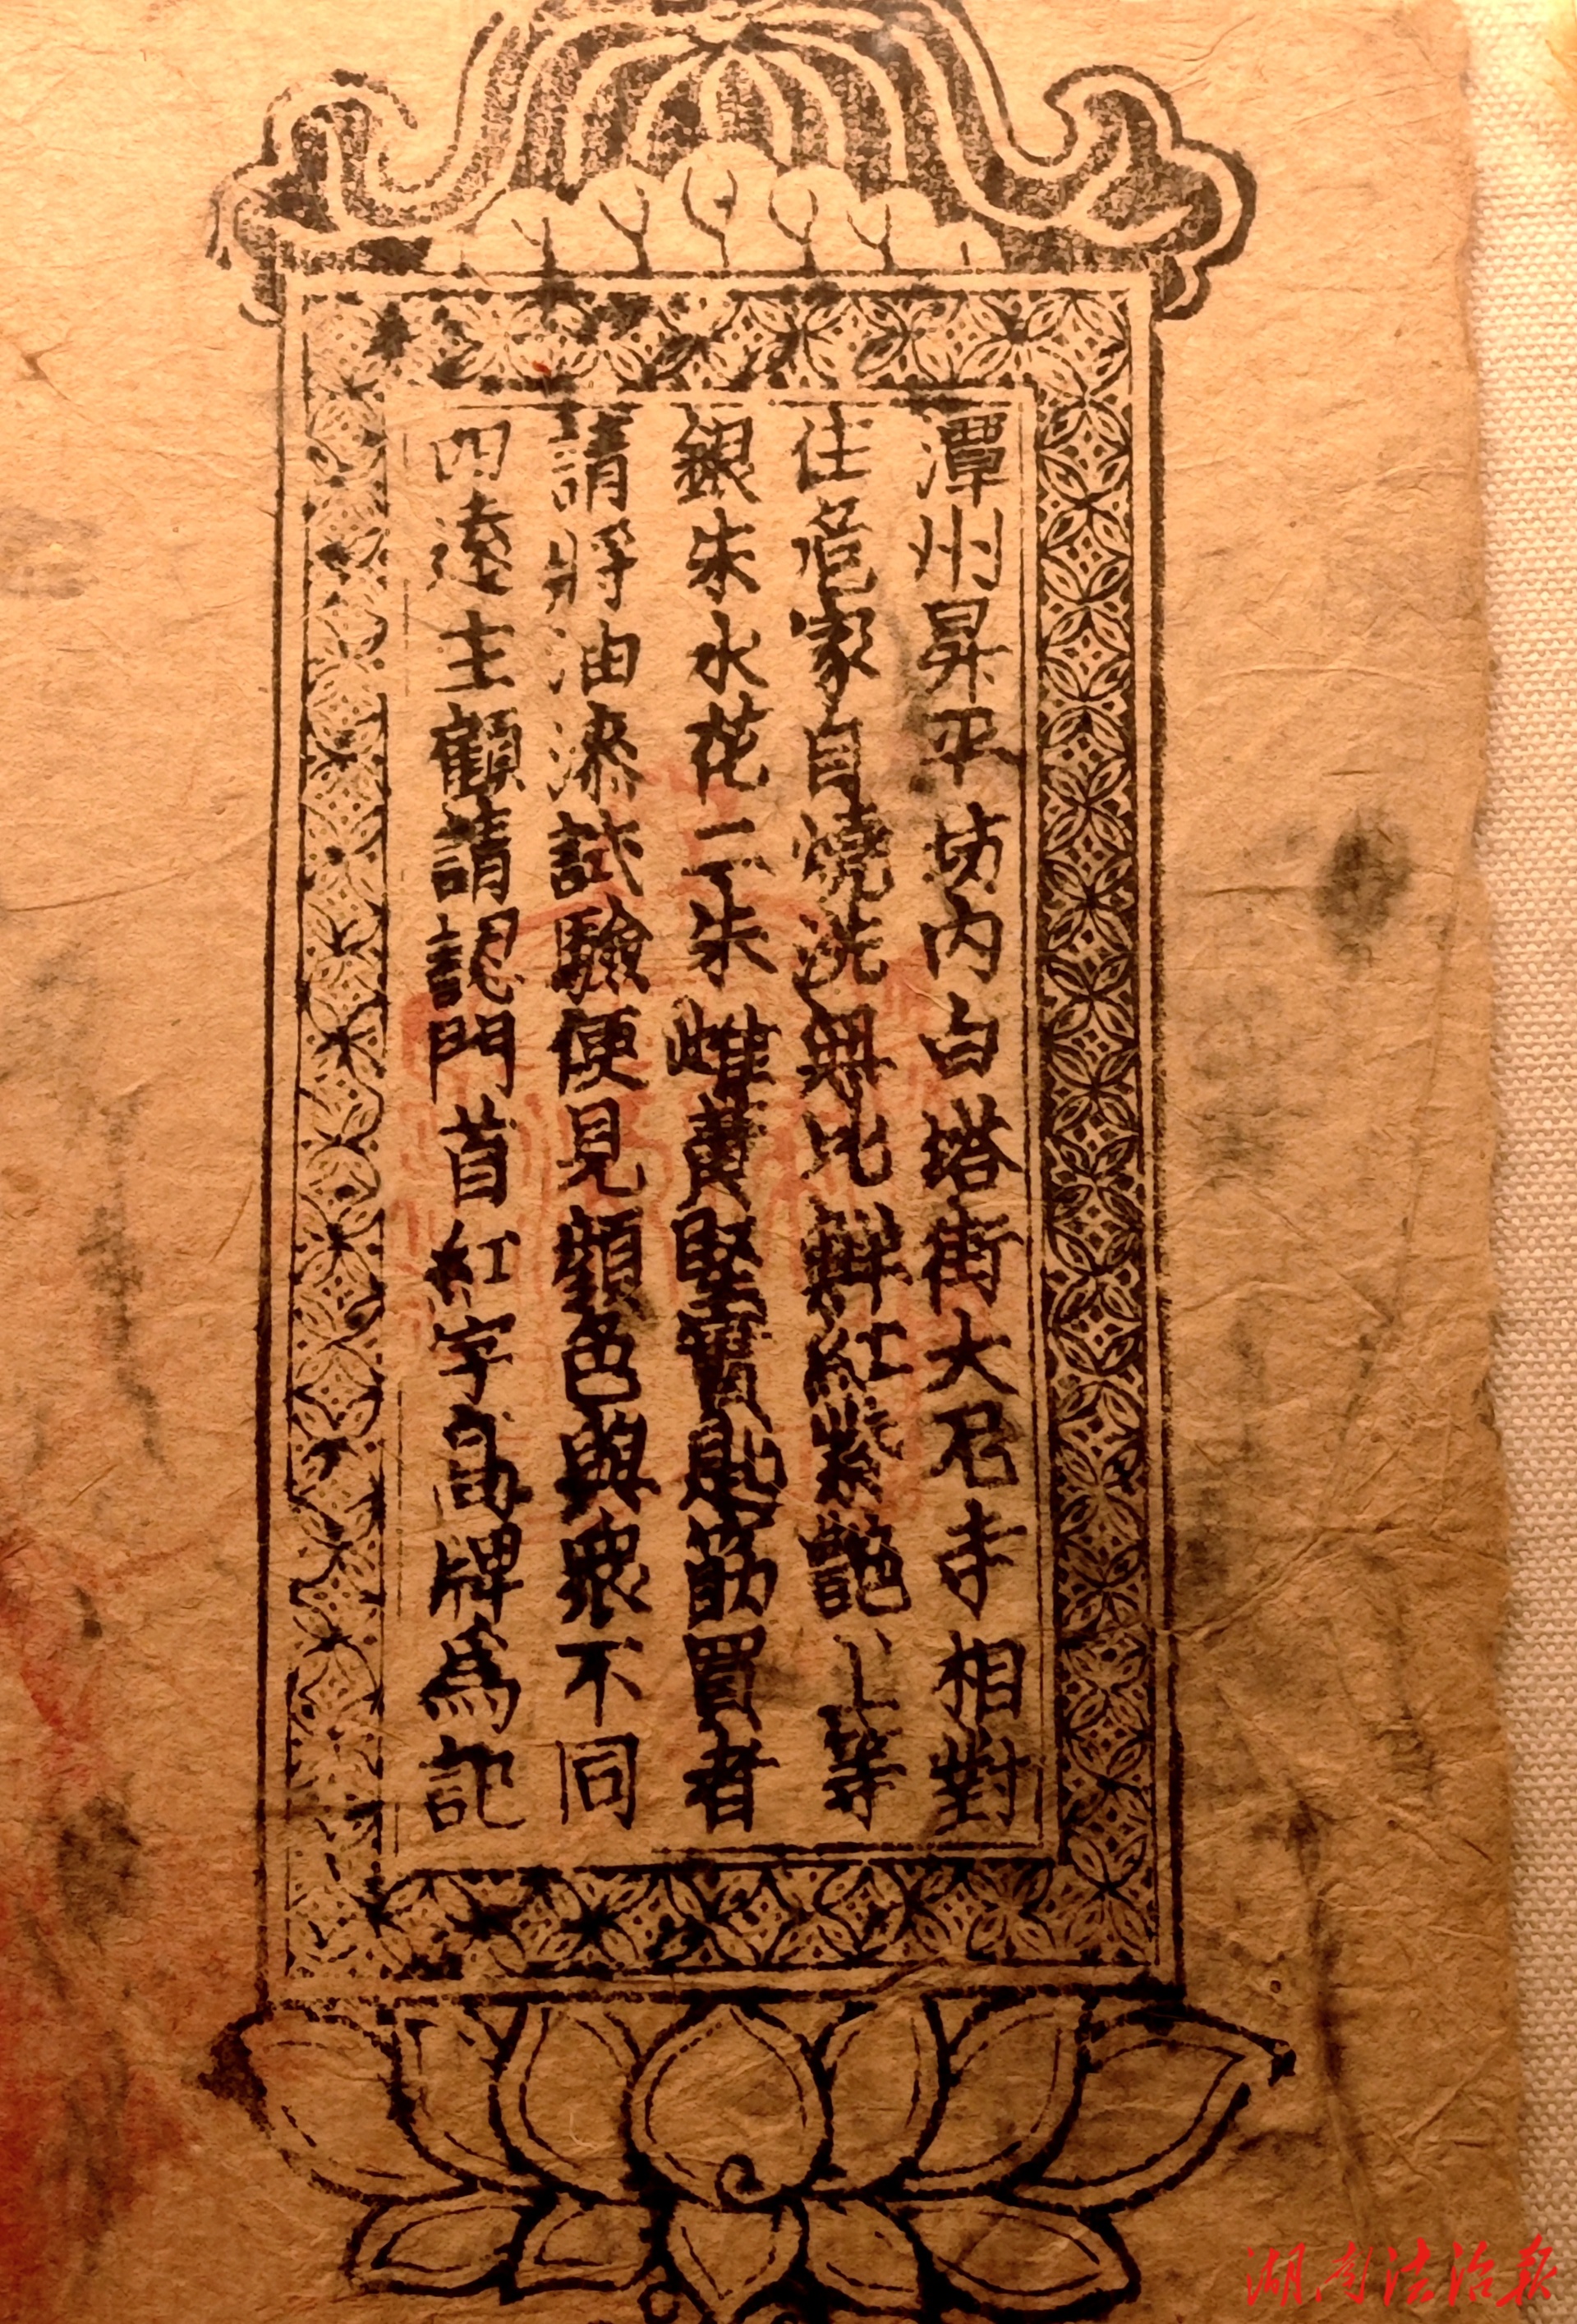 潭州昇平坊内白塔街大尼寺相對
住危家自燒洗無比鮮紅紫艷上等
銀朱水花二朱雌黄堅實匙筯買者
請將油漆試驗便見顔色與衆不同
四逺主顧請認門首紅字高牌爲記
湖南法治报